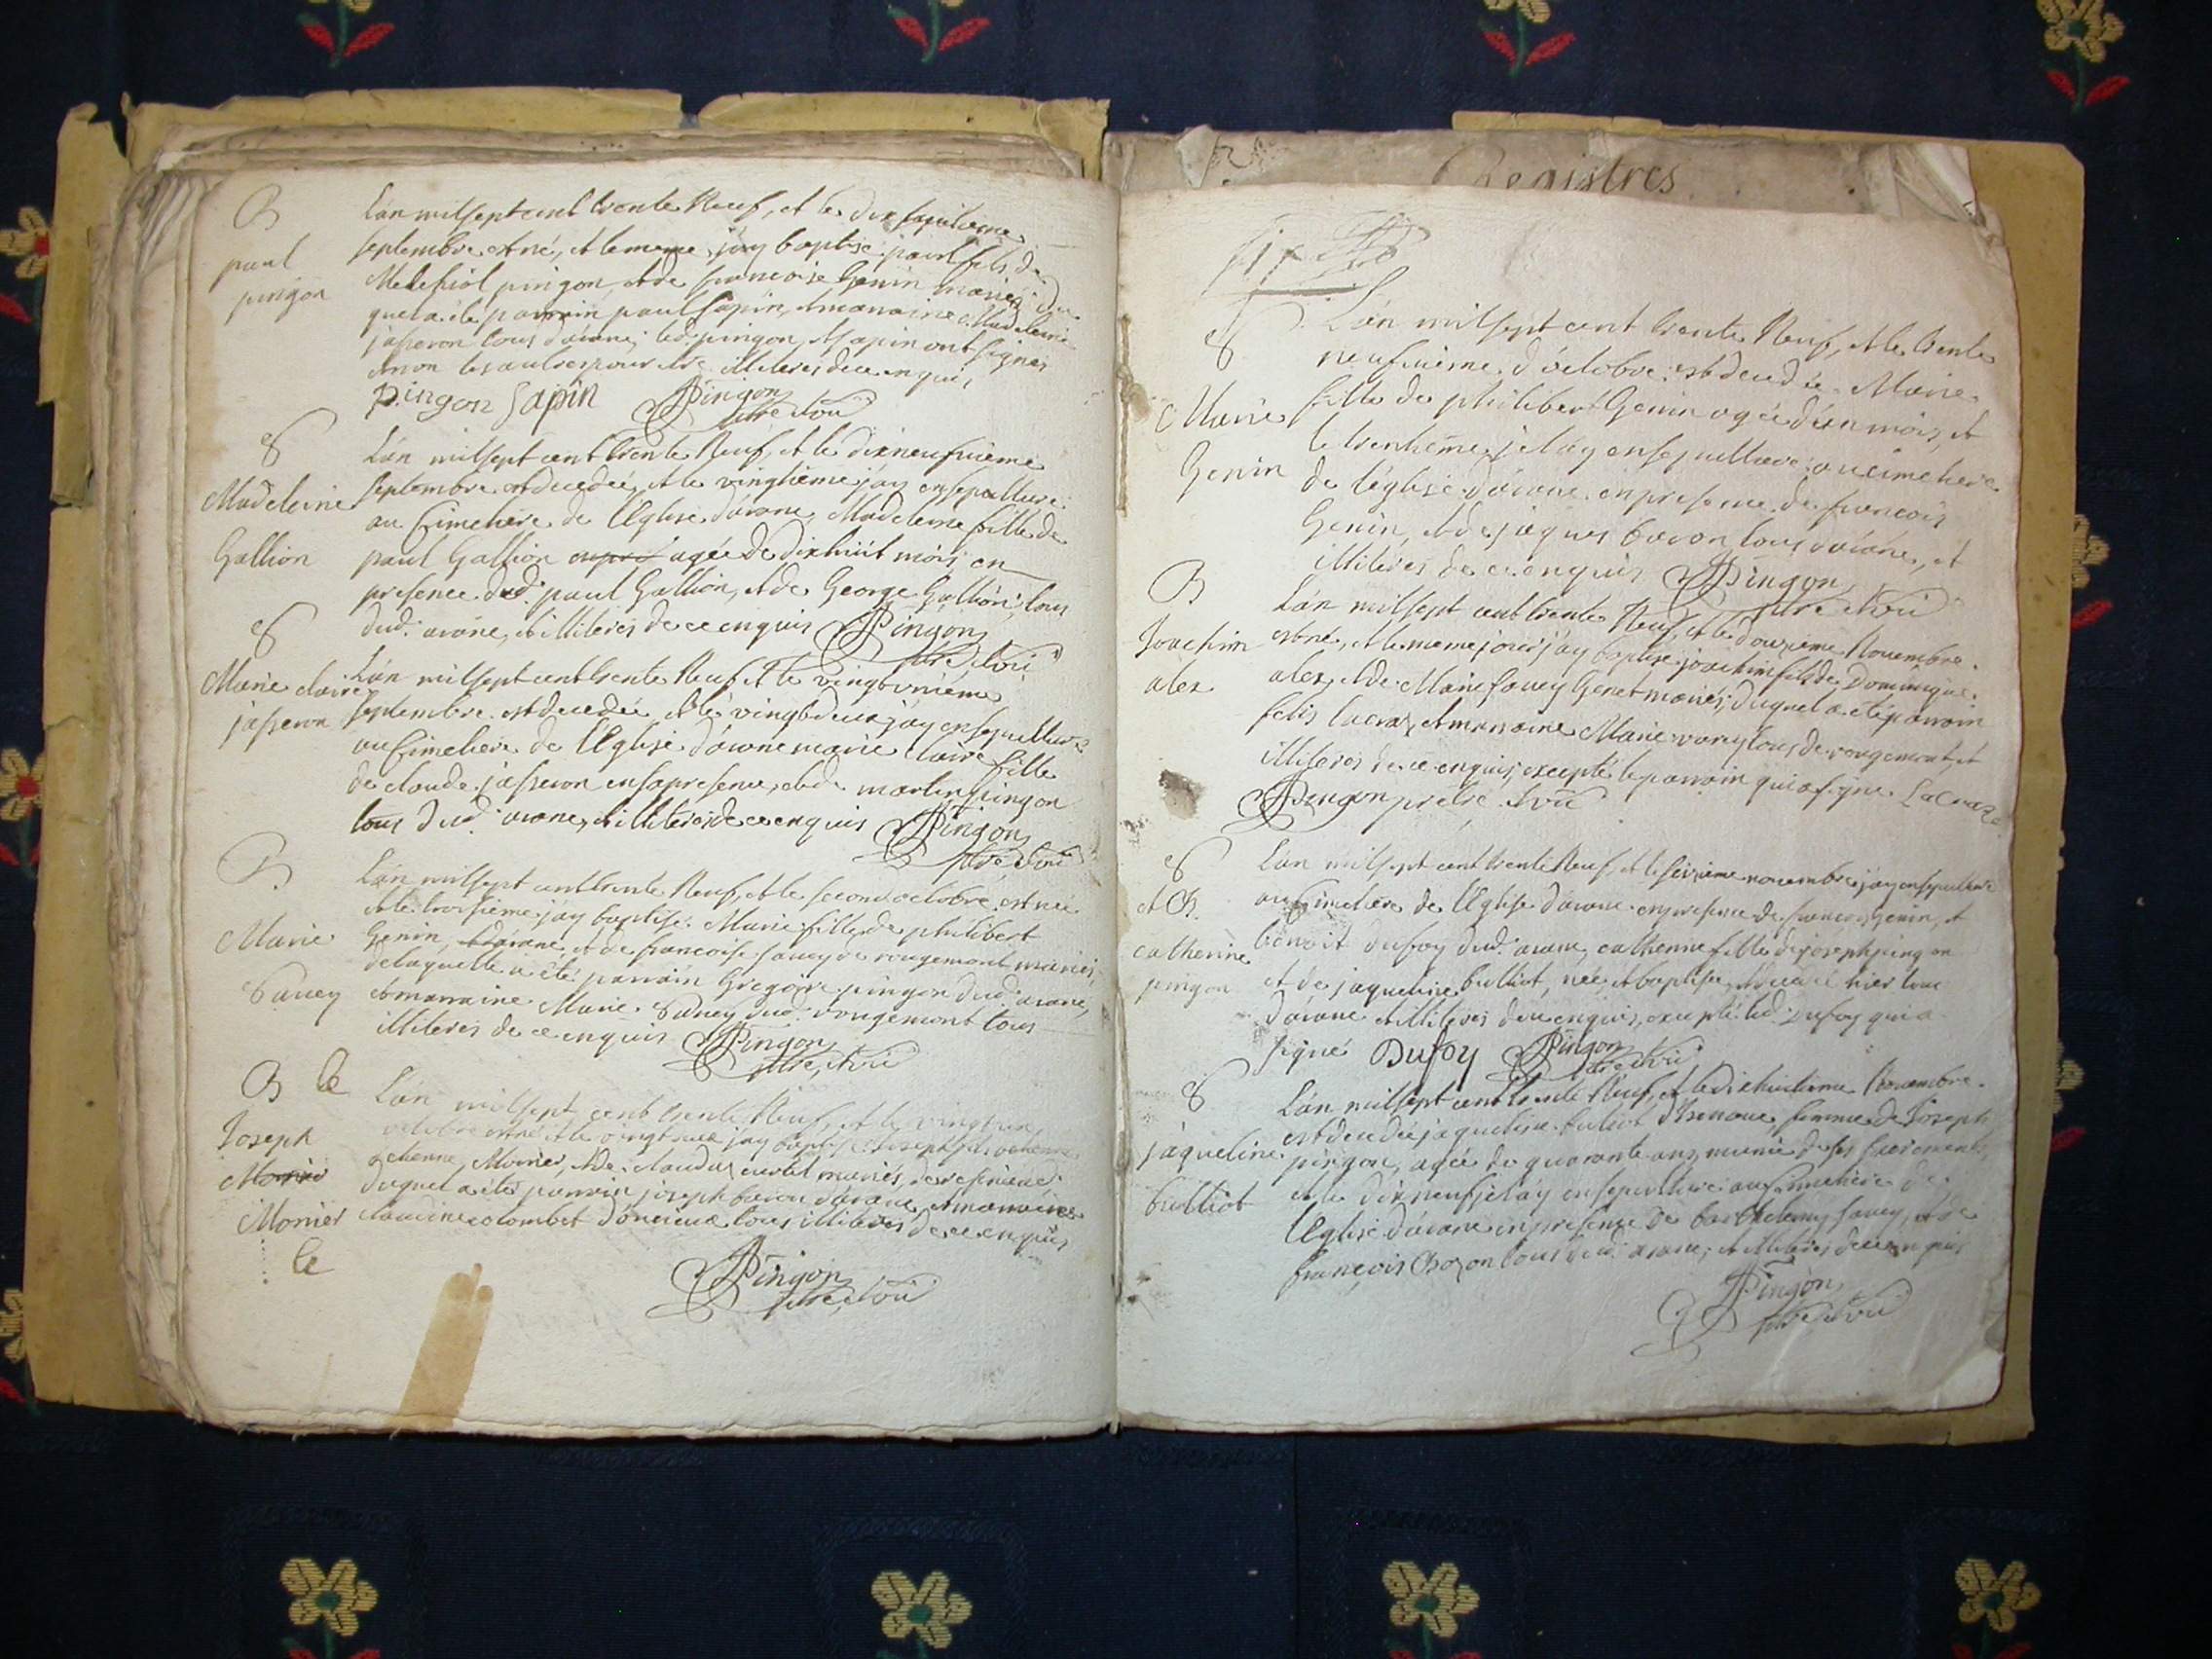 B
paul
pingon
L'an mil sept cent trente Neuf, et le dix septieme
septembre est né, et le meme j'ay baptisé paul fils de
Melchiol pingon, et de francoise Genin mariés du
quel a été parrain paul Sapin, et marraine Madeleine
jasseron tous d'arane; led. pingon, et sapin ont signés
et non les autres pour être illiteres de ce enquis
pingon Sapin Pingon
ptre et curé
S
Madeleine
Gallion
L'an mil sept cent trente Neuf, et le dixneufuieme
septembre est decedée, et le vingtieme j'ay ensepulturé
au Cimetiere de l'Eglise d'arane, Madeleine fille de
paul Gallion agée de dixhuit mois en
presence dud. paul Gallion, et de George Gallion, tous
dud. arane, et illiteres de ce enquis Pingon
ptre et curé
S
Marie claire
jasseron
L'an mil sept cent trente Neuf et le vingt unième
septembre est decedée et le vingt deux j'ay ensepulturé
au Cimetiere de l'Eglise d'arane marie claire fille
de claude jasseron en sa presence, et de martin pingon
tous dud. arane, et illiteres de ce enquis Pingon
ptre et curé
B
Marie
Savey
L'an mil sept cent trente Neuf, et le second octobre est née
et le troisieme j'ay baptisé Marie fille de philibert
Genin, et de francoise savey de rougemont mariés,
de laquelle a été parrain Gregoire pingon dud. arane,
et marraine Marie Savey dud. rougemont tous
illiteres de ce enquis Pingon
ptre et curé
B le
Joseph
Monier
le
L'an mil sept cent trente Neuf, et le vingt un
octobre est né et le vingt deux j'ay baptisé Joseph fils
etienne Monier, et de claudine curtil mariés
duquel a été parrain joseph baron d'arane, et marraine
claudine colombet d'oncieux tous illiteres de ce enquis
Pingon
ptre et curé
Registres
S
Marie
Genin
L'an mil sept cent trente Neuf, et le trente
neufuieme d'octobre est decedée Marie
fille de philibert Genin agée d'un mois, et
le trentieme je l'ay ensepulturé au cimetiere
de l'église d'arane en presence de francois
Genin, et de jaques baron tous d'arane, et
illiteres de ce enquis Pingon
ptre et curé
B
Joachim
alex
L'an mil sept cent trente Neuf, et le douzieme Nouembre
est né, et le meme jour j'ay baptisé joachim fils de Dominique
alex, et de Marie savey Genet mariés; duquel a été parrain
felis lacraz, et marraine Marie tous de rougemont, et
illiteres de ce enquis, excepté le parrain qui a signé Lacraz
Pingon prêtre et curé
S
et B.
catherine
pingon
L'an mil sept cent trente Neuf, et le seizieme nouembre j'ay ensepulturé
au Cimetiere de l'Eglise d'arane en presence de francois Genin, et
benoit dufoy dud. arane, catherine fille de joseph pingon
et de jaqueline bulliot, née et baptisée, et decedée hier tous
d'arane et illiteres de ce enquis, excepté led. Dufoy qui a
signé Dufoy Pingon
ptre et curé
S
jaqueline
bulliot
L'an mil sept cent trente Neuf, et le dixhuitieme Nouembre
est decedée jaqueline buliot d'Isenaue femme de Joseph
pingon, agée de quarante ans, munie de ses sacrements,
et le dixneuf je l'ay ensepulturé au Cimetiere de
l'Eglise d'arane en presence de barthelemy savey, et de
françois Bozon tous dud. arane; et illiteres de ce enquis
Pingon
ptre et curé